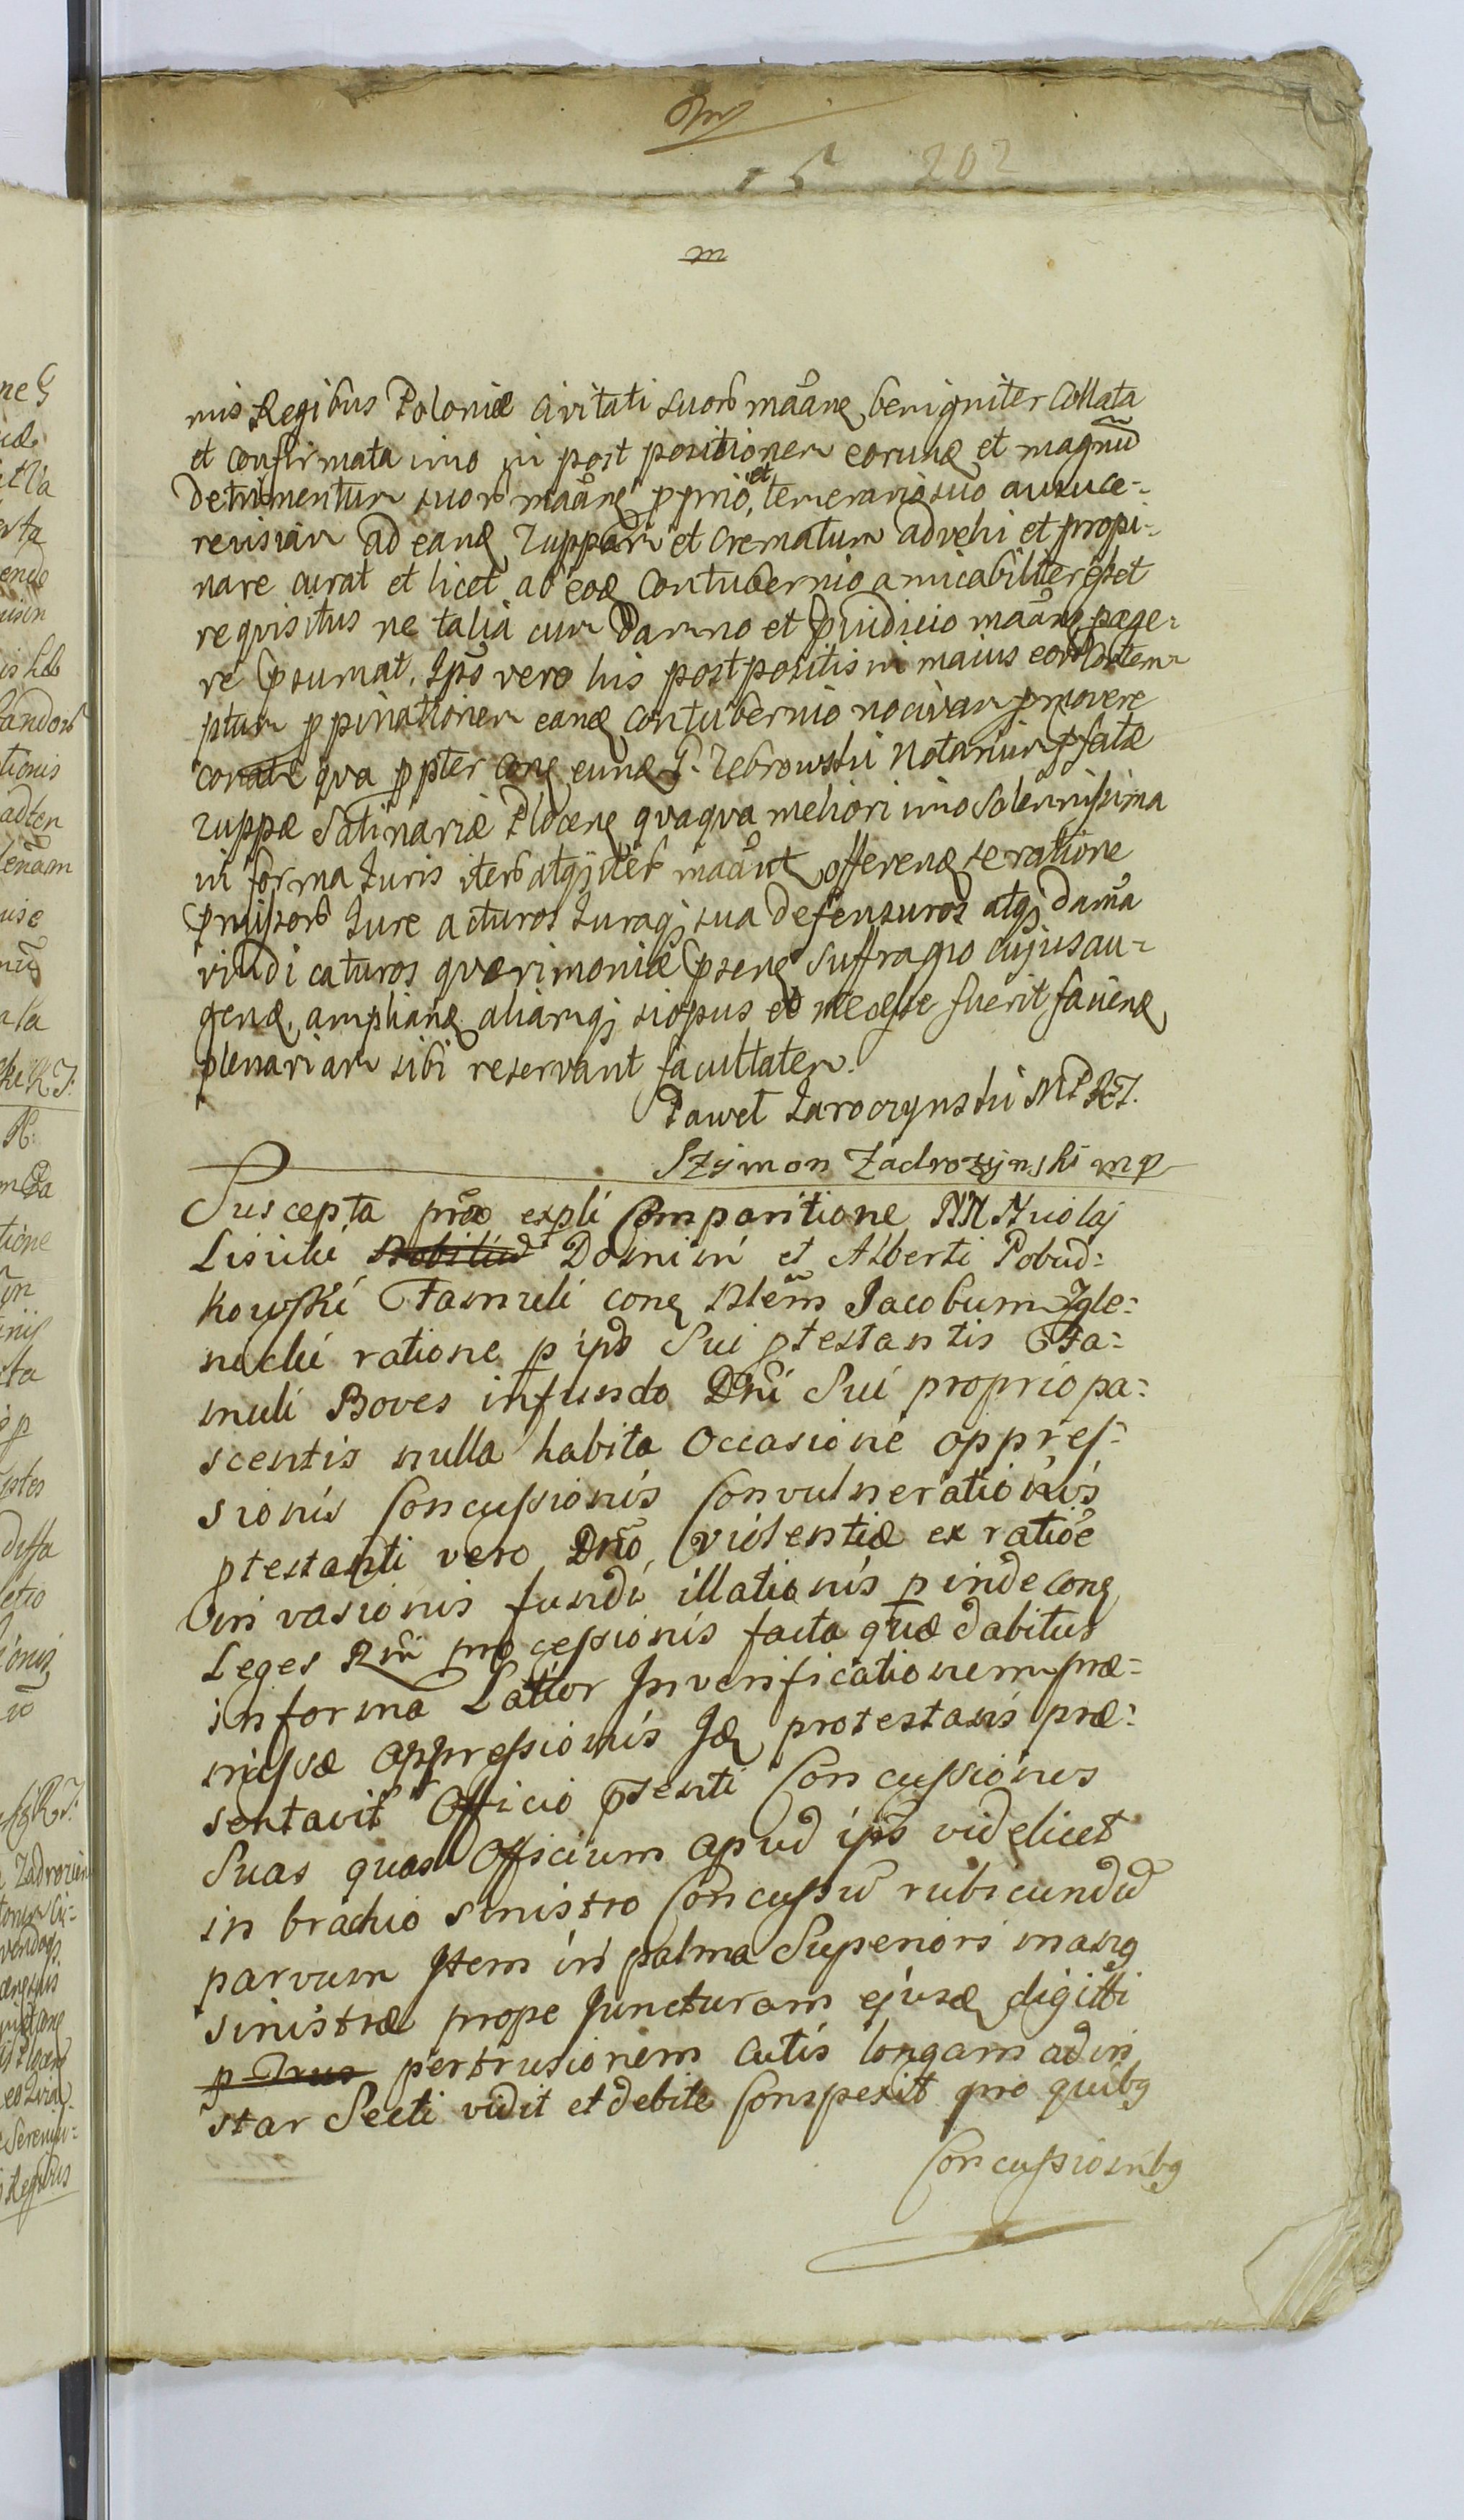 15 202
m
mis Regibus Poloniæ Civitati suorb maãnę benigniter Collata
et Confirmata imo in post positionem eorundę et magnũ
detrimentum suorb maãnę pprio et temerario suo ausu ce-
revisiam ad eandę Zuppam et Crematum advehi et propi-
nare curat et licet ab eodę Contubernio amicabiliter esset
requisitus ne talia cum Damno et pjudicio maãnę page-
re psumat. Ips vero his post positis in maius eorb Contem-
ptum ppinationem eandę Contubernio nocivam pmovere
conate qva ppter Conę eundę P. Zebrowski Notarium pfatæ
Zuppæ Salinariæ Plocenę qvaqva meliori imo Solennissima
in forma Juris iterb atqj iterb maãnt offerendę se ratione
pmissorb Jure acturos Juraqj sua defensuros atqj damã
vindicaturos qværimoniæ psenę Suffragio cujus au-
gendę, ampliandę aliamqj si opus et necesse fuerit faciendę
plenariam sibi reservant facultatem.
Paweł Jaroczynski MP RJ.
Szymon Zadrozynski mp
Suscepta prõo expli Comparitione NN Nicolaj
Lisicki Nobiliũ Domini et Alberti Pobud-
kowski Famuli conę Nlẽm Jacobum Igle-
nicki ratione p ips Sui ptestantis Fa-
muli Boves in fundo Dñi Sui proprio pa-
scentis nulla habita Occasione oppres-
sionis Concussionis Convulnerationis
ptestanti vero Dño Violentiæ ex ratiõe
in vasionis fundi illationis p inde conę
Leges Rñi pro cessionis facta quæ dabitur
in forma Latior In verificationem præ-
missæ oppressionis Idę protestans præ-
sentavit Officio psenti Concussiones
Suas quas Officium apud ips videlicet
in brachio sinistro Concussũ rubicundũ
parvum Item in palma Superiori mang
sinistræ prope Juncturam ejusdę digitti
p Trus pertrusionem Cutis longam ad in
star Secti vidit et debite Conspexit pro quibg
Concussionibg